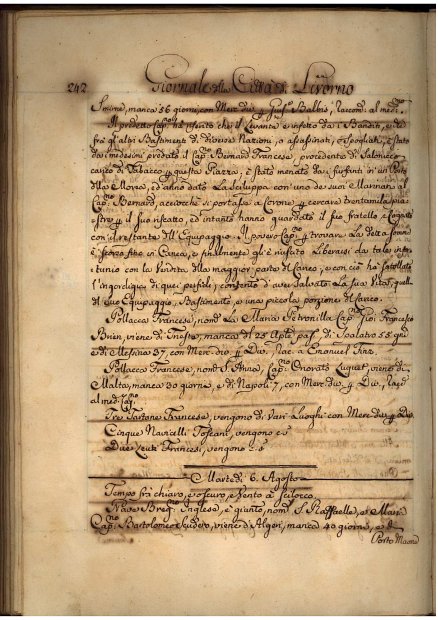 242 Giornale della Città di Livorno
Smirne, manca 56 giorni, con Merc. div. p Giuse. Balbis, Racond. al med.mo
Il predetto Cap.no ha riferito che il Levante è infetto da i Banditi, e che
frà gl'altri Bastimenti di diverse Nazioni, o assassinati, o spogliati, è stato
dai medesimi predato il Cap. Bernard Francese, procedente di Salonicco
carico di Tabacco p questa Piazza, è stato menato dai furfanti in un Porto
della Morea, ed anno dato La Scialuppa con uno de suoi Marinari al
Cap. Bernard, accioche si portasse a Corone p cercare trentamila pia-
stre p il suo riscatto, ed intanto hanno guardato il suo fratello, e Cognato
con il restante dell'Equipaggio. Il povero Cap.no p trovare La detta somma
è scorso fino in Canea, e finalmente gl'è riuscito Liberarsi da tale infor-
tunio con La Vendita della maggior parte del Carico, e con ciò ha satollata
l'ingordigia di quei perfidi, contento d'aver salvato La sua Vita, quella
del suo Equipaggio, Bastimento, e una piccola porzione del Carico.
Pollacca Francese, nom.a La Maria Petronilla Cap.no Gio: Francesco
Brien, viene di Trieste, manca dal 25 Aple pas.o, di Spalatro 55 gni
e di Messina 37, con Merc. div. p Div. Rac. a Emanuel
Pollacca Francese, nom.a S. Anna, Cap.no Onorato Luquet, viene di
Malta, manca 20 giorni, e di Napoli 7, con Merc. div. p Div. Rac.o
al med. Cap.
Tre Tartane Francese, vengono di Varj Luoghi con Merc. div. p Div.
Cinque Navicelli Toscani, vengono c.s.
Due Leuti Francesi, vengono c.s.
Martedì 6. Agosto
Tempo frà chiaro, e oscuro, e Vento a Scilocco.
Nave Inglese, è giunto, nom.o S. Raffaelle, e Maria
Cap.o Bartolomeo Scudero, viene d'Algeri, manca 40 giorni, e di
Porto Maone